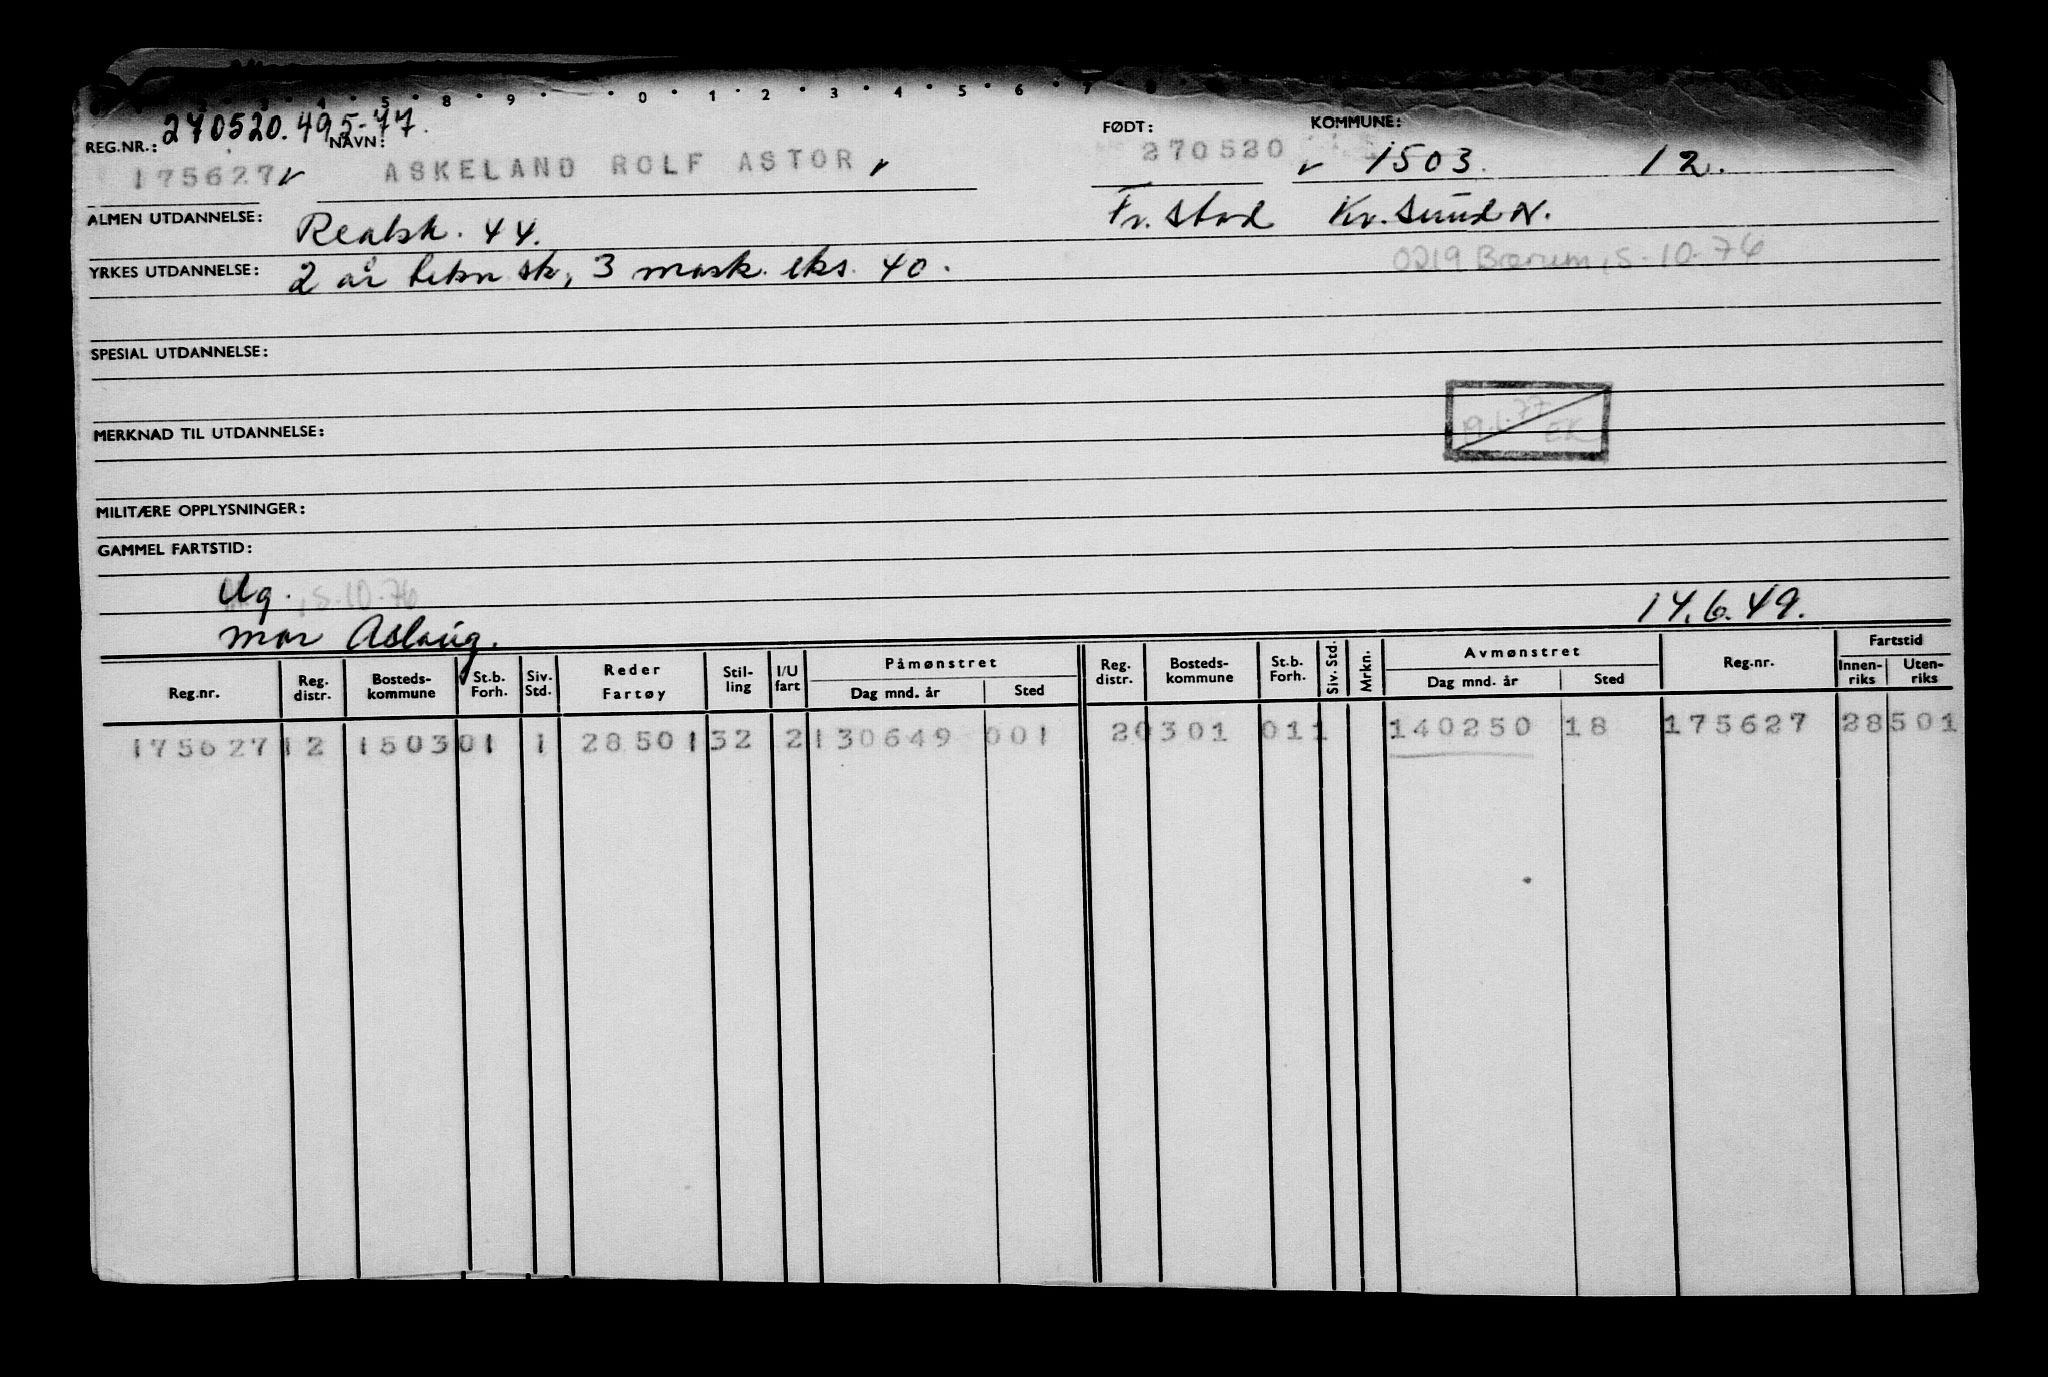 2 · 3 · 4 · 5 · 8 · 9 · · 0 · 1 · 2 · 3 · 4 · 5 · 6 · 7 · 8
REG.NR.: 270520.495-77. NAVN: FØDT: KOMMUNE:
175627 v ASKELAND ROLF ASTOR v 270520 v 1503. 12.
ALMEN UTDANNELSE: Realsk. 44. Fr.stad Kr.sund N.
YRKES UTDANNELSE: 2 år tekn sk, 3 mask. eks. 40. 0219 Bærum, 5-10-76
SPESIAL UTDANNELSE:
MERKNAD TIL UTDANNELSE: 77 EK
MILITÆRE OPPLYSNINGER:
GAMMEL FARTSTID:
Ug. , 5-10-76 14.6.49.
mor Aslaug.
Reg.nr. Reg. distr. Bosteds-kommune St.b. Forh. Siv. Std. Reder Fartøy Stil-ling I/U fart Påmønstret Dag mnd. år Sted Reg. distr. Bosteds-kommune St.b. Forh. Siv. Std. Mrkn. Avmønstret Dag mnd. år Sted Reg.nr. Fartstid Innen-riks Uten-riks
175627 12 1503 01 1 28501 32 2 130649 001 20301 011 140250 18 175627 28501